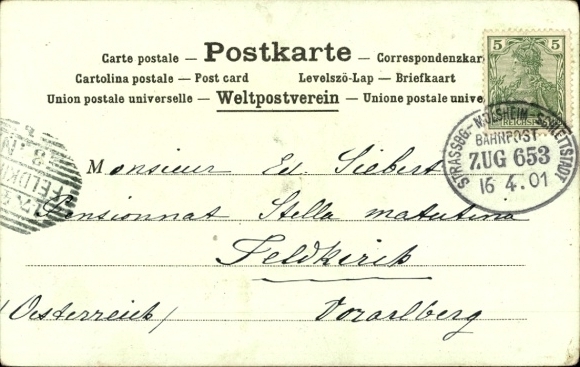 Carte postale — Postkarte — Correspondenzkar
Cartolina postale — Post card Levelszö-Lap — Briefkaart
Union postale universelle — Weltpostverein — Unione postale unive
5 5
REICHSPOST
STRASSBG.-MOLSHEIM-SCHLETTSTADT
BAHNPOST
ZUG 653
16 4.01
FELDKIRCH
Monsieur Ed Siebert
Pensionnat Stella matutina
Feldkirch
(Oesterreich) Vorarlberg